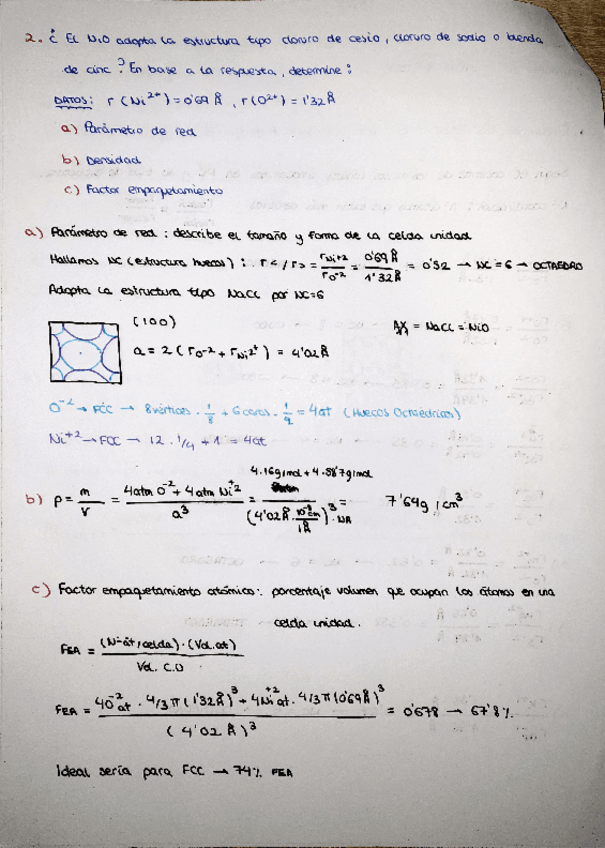 2. ¿ El NiO adopta la estructura tipo cloruro de cesio, cloruro de sodio o blenda
de cinc? En base a la respuesta, determine:
DATOS: r (Ni²⁺) = 0'69 Å , r (O²⁺) = 1'32 Å
a) Parámetro de red
b) Densidad
c) Factor empaquetamiento
a) Parámetro de red : describe el tamaño y forma de la celda unidad
Hallamos NC (estructura huecos) : r< / r> = rNi⁺² / rO⁻² = 0'69 Å / 1'32 Å = 0'52 → NC = 6 → OCTAEDRO
Adopta la estructura tipo NaCl por NC=6
(100)
AX = NaCl = NiO
a = 2 ( rO⁻² + rNi²⁺ ) = 4'02 Å
O⁻² → FCC → 8 vértices · 1/8 + 6 caras · 1/2 = 4at (Huecos Octaédricos)
Ni⁺² → FCC → 12 · 1/4 + 1 = 4at
b) ρ = m / V = 4 atm O⁻² + 4 atm Ni⁺² / a³ = 4·16 g/mol + 4·58'7 g/mol / (4'02 Å · 10⁻⁸ cm / 1 Å)³ · NA = 7'64 g / cm³
c) Factor empaquetamiento atómico: porcentaje volumen que ocupan los átomos en una
celda unidad.
FEA = (N-at/celda) · (Vol.at) / Vol. C.U
FEA = 4O⁻² at · 4/3 π (1'32 Å)³ + 4Ni⁺² at · 4/3 π (0'69 Å)³ / (4'02 Å)³ = 0'678 → 67'8 %
Ideal sería para FCC → 74% FEA